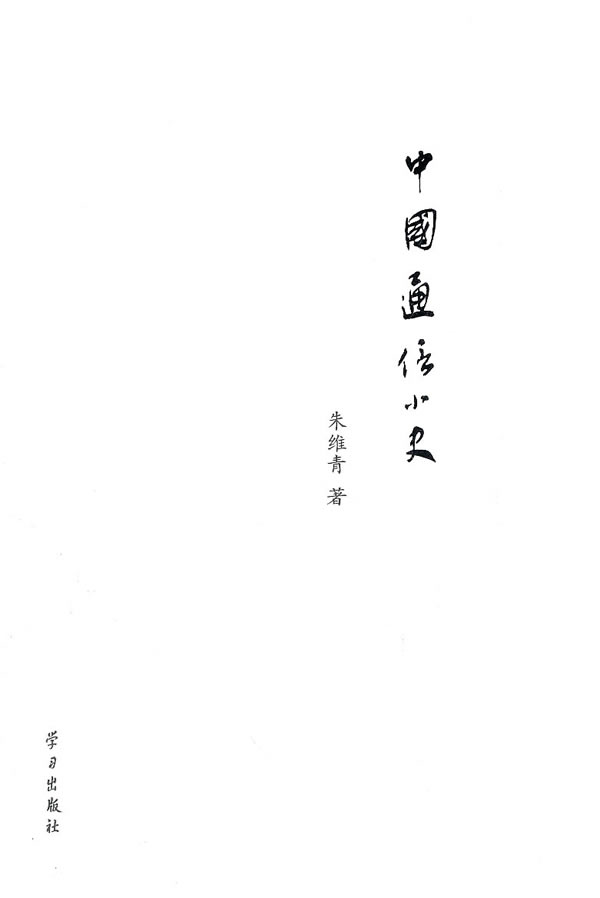 中國通信小史
朱维青 著
学习出版社